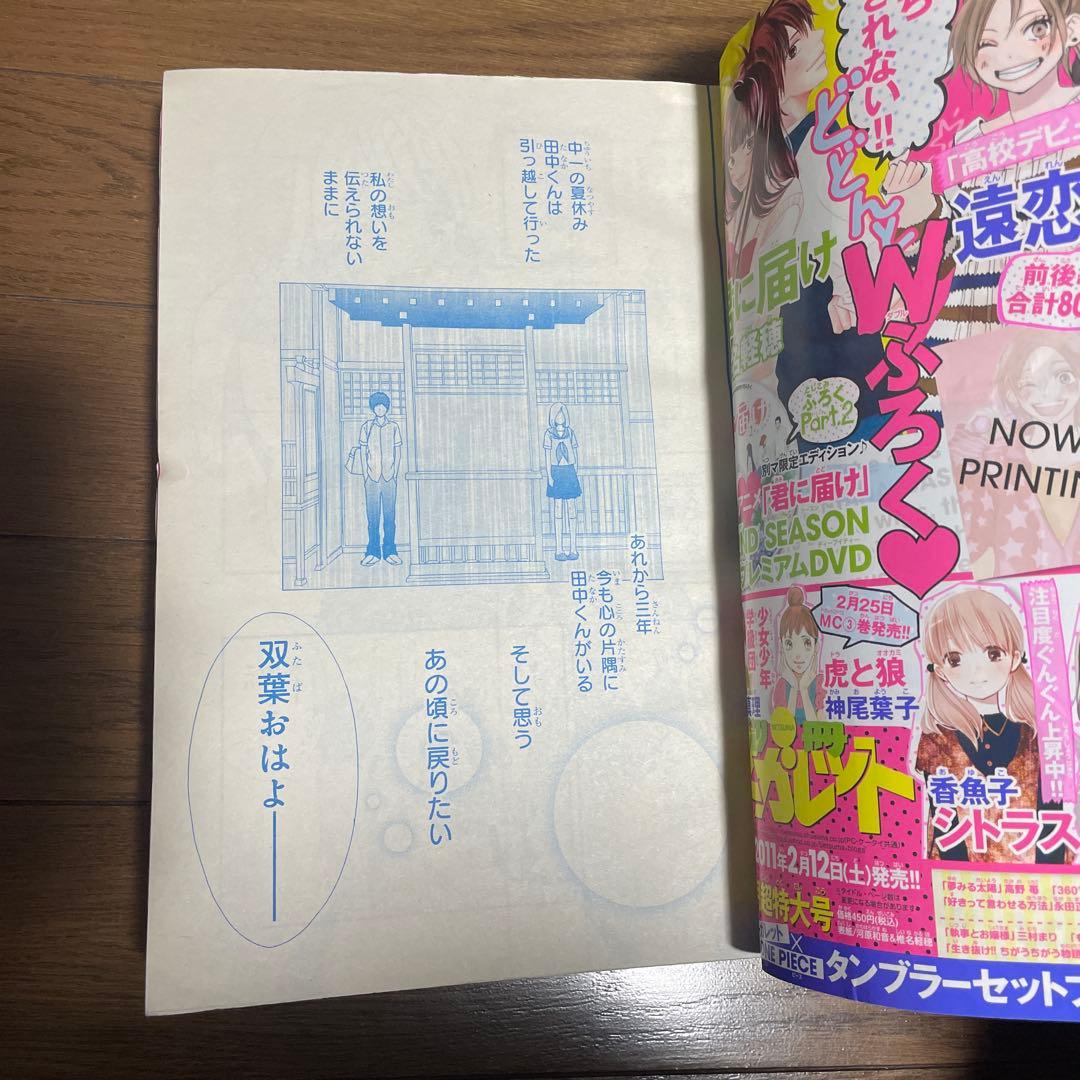 中一の夏休み
田中くんは
引っ越して行った
私の想いを
伝えられない
ままに
あれから三年
今も心の片隅に
田中くんがいる
そして思う
あの頃に戻りたい
双葉おはよ――
されない!!
どどん
Wふろく
「高校デビュ
遠恋
前後
合計80
に届け
軽穂
とじこみ
ふろく
Part.2
NOW
PRINTIN
別マ限定エディション♪
「君に届け」
ND SEASON
ミアムDVD
2月25日
MC③巻発売!!
少女少年
学級団
虎と狼
神尾葉子
注目度ぐんぐん上昇中!!
香魚子
シトラス
2011年2月12日(土)発売!!
超特大号
※タイトル・ページ数は
変更になる場合があります
価格450円(税込)
表紙/河原和音&椎名軽穂
「夢みる太陽」高野苺
「360°
「好きって言わせる方法」永田正
「執事とお嬢様」三村まり
「生き抜け!! ちがうちがう物語
×
ONE PIECE
タンブラーセット